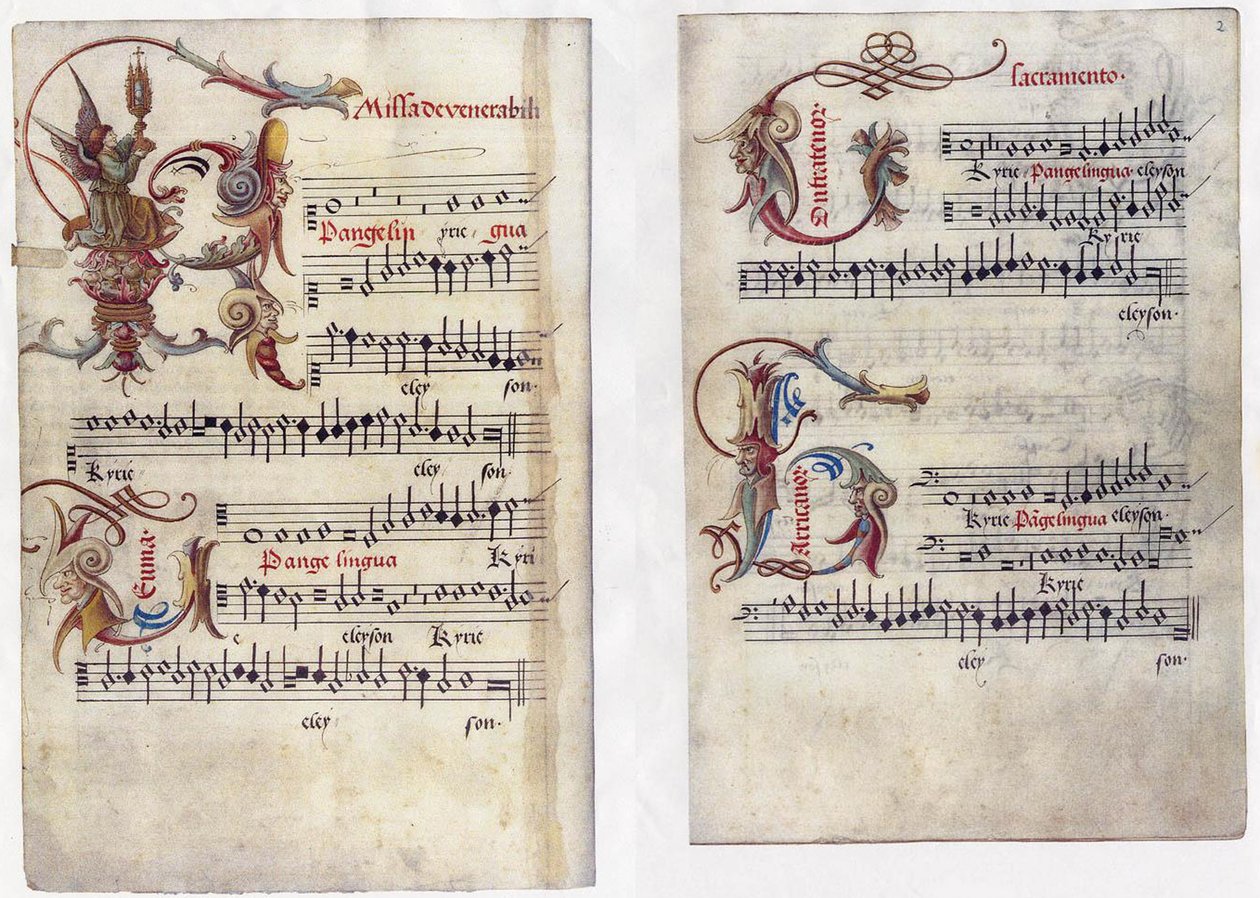 Missa de venerabili
Pangelin yrie gua
eley son.
Kyrie eley son.
Pange lingua Kyri
e eleyson Kyrie
eley son.
2
sacramento.
Kyrie Pangelingua eleyson
Kyrie
eleyson.
Kyrie Pãgelingua eleyson.
Kyrie
eley son.